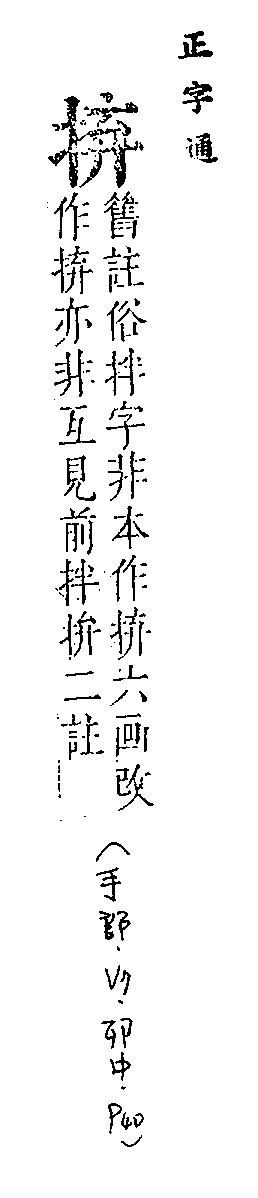 正字通
舊註俗拌字非本作拚六画改
作拚亦非互見前拌拚二註
(手部·V7·卯中·P40)